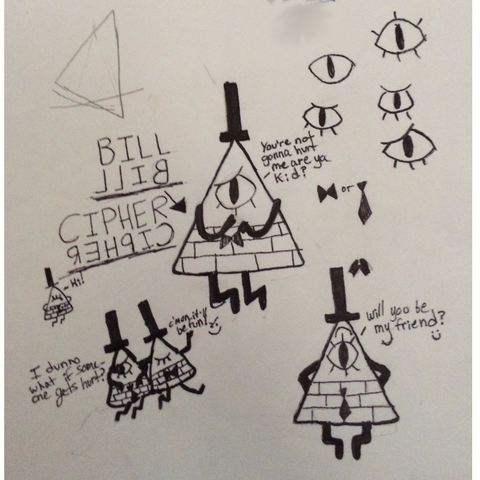 BILL
BILL
CIPHER
CIPHER
You're not
gonna hurt
me are ya
Kid?
or
Hi!
I dunno
what if some-
one gets hurt?
c'mon, it'll
be fun! :)
will you be
my friend?
:)